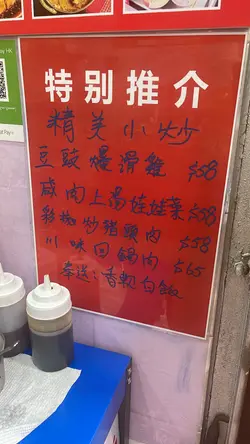 特别推介
精美小炒
豆豉爆滑雞 $58
咸肉上湯娃娃菜 $58
彩椒炒豬頸肉 $58
川味回鍋肉 $65
奉送：香軟白飯
Pay HK